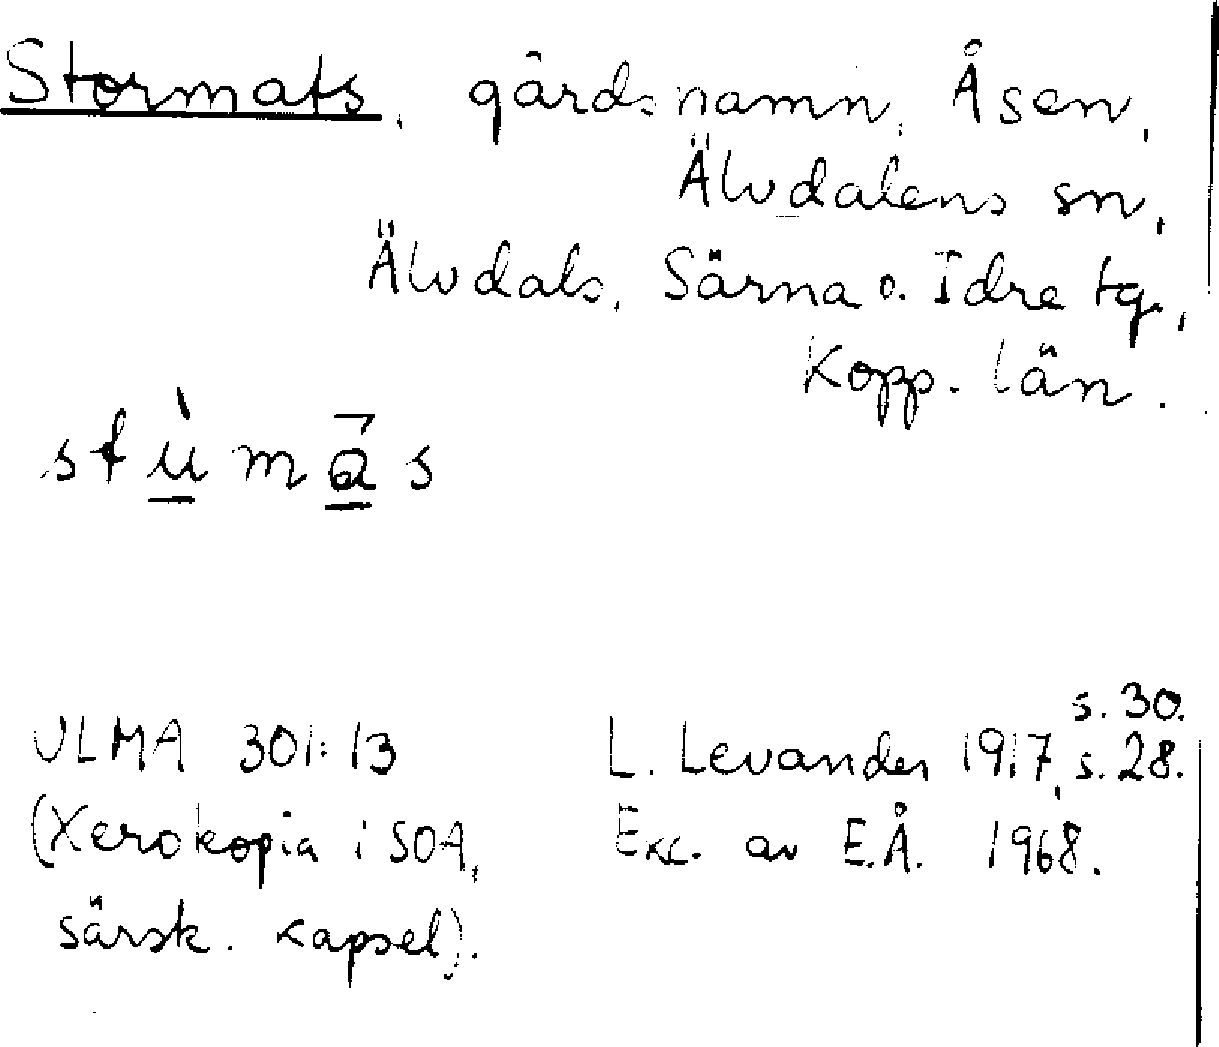 Stormats, gårdsnamn, Åsen,
Älvdalens sn,
Älvdals, Särna o. Idre tg.,
Kopp. län.
stù̲mā̲s
s. 30.
ULMA 301:13 L. Levander 1917, s. 28.
(Xerokopia i SOA, Exc. av E.Å. 1968.
särsk. kapsel).